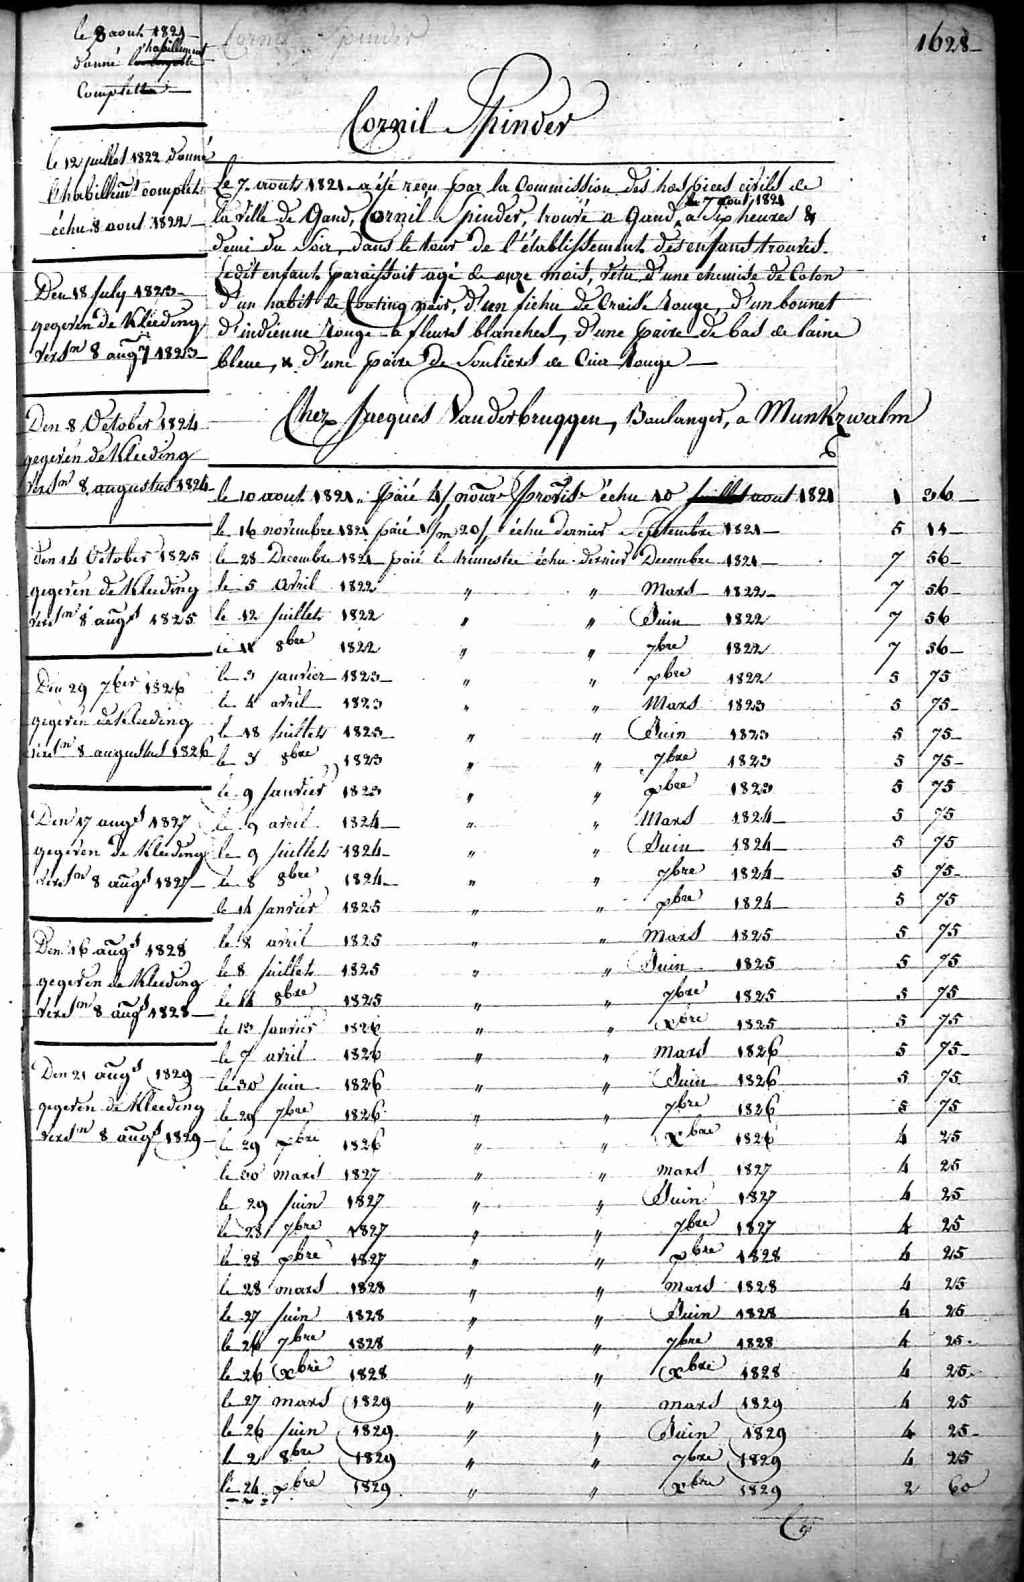 le 8 aout 1821
donné l'habillement
complette
Cornil Spinder
1628
Cornil Spinder
le 12 juillet 1822 donné
l'habillemt complet
échu 8 aout 1822
Le 7 aout 1821 a été reçu par la Commission des hospices civils de
la ville de Gand, Cornil Spinder, trouvé a Gand, le 7 aout 1821 a Six heures &
demi du Soir, dans le tour de l'établissement des enfans trouvés.
Ledit enfant paraissoit agé de onze mois, vétu d'une chemise de Coton
d'un habit de Coating noir, d'un fichu de Croisé Rouge, d'un bonnet
d'indienne Rouge a fleurs blanches, d'une paire de bas de laine
bleue, & d'une paire de Souliers de Cuir Rouge
Den 18 july 1823
gegeven de Kleeding
vers.n 8 aug 1823
Chez Jacques Vanderbruggen, Boulanger, a Munkzwalm
Den 8 October 1824
gegeven de Kleeding
vers.n 8 augustus 1824
den 14 October 1825
gegeven de Kleeding
vers.n 8 augt 1825
Den 29 7ber 1826
gegeven de Kleeding
vers.n 8 augustus 1826
Den 17 augt 1827
gegeven de Kleeding
vers.n 8 augt 1827
Den 16 augt 1828
gegeven de Kleeding
vers.n 8 augt 1828
Den 21 augt 1829
gegeven de Kleeding
vers.n 8 augt 1829
le 10 aout 1821 " Paié échu 10 juillet aout 1821 1 36
le 16 novembre 1821 paié échu dernier Septembre 1821 5 14
le 28 Decembre 1821 paié le trimestre échu dernier Decembre 1821 7 56
le 5 avril 1822 " " Mars 1822 7 56
le 12 juillet 1822 " " Juin 1822 7 56
le 8bre 1822 " " 7bre 1822 7 56
le 3 janvier 1823 " " xbre 1822 5 75
le 4 avril 1823 " " Mars 1823 5 75
le 18 juillet 1823 " " Juin 1823 5 75
le 3 8bre 1823 " " 7bre 1823 5 75
le 9 janvier 1823 " " xbre 1823 5 75
le 9 avril 1824 " " Mars 1824 5 75
le 9 juillet 1824 " " Juin 1824 5 75
le 8 8bre 1824 " " 7bre 1824 5 75
le 14 janvier 1825 " " xbre 1824 5 75
le 8 avril 1825 " " Mars 1825 5 75
le 8 juillet 1825 " " Juin 1825 5 75
le 14 8bre 1825 " " 7bre 1825 5 75
le 13 janvier 1826 " " xbre 1825 5 75
le 7 avril 1826 " " Mars 1826 5 75
le 30 juin 1826 " " Juin 1826 5 75
le 29 7bre 1826 " " 7bre 1826 5 75
le 29 xbre 1826 " " xbre 1826 4 25
le 30 mars 1827 " " mars 1827 4 25
le 29 juin 1827 " " Juin 1827 4 25
le 28 7bre 1827 " " 7bre 1827 4 25
le 28 xbre 1827 " " xbre 1828 4 25
le 28 mars 1828 " " mars 1828 4 25
le 27 juin 1828 " " Juin 1828 4 25
le 26 7bre 1828 " " 7bre 1828 4 25
le 26 xbre 1828 " " xbre 1828 4 25
le 27 mars 1829 " " mars 1829 4 25
le 26 juin 1829 " " Juin 1829 4 25
le 2 8bre 1829 " " 7bre 1829 4 25
le 24 xbre 1829 " " xbre 1829 2 60